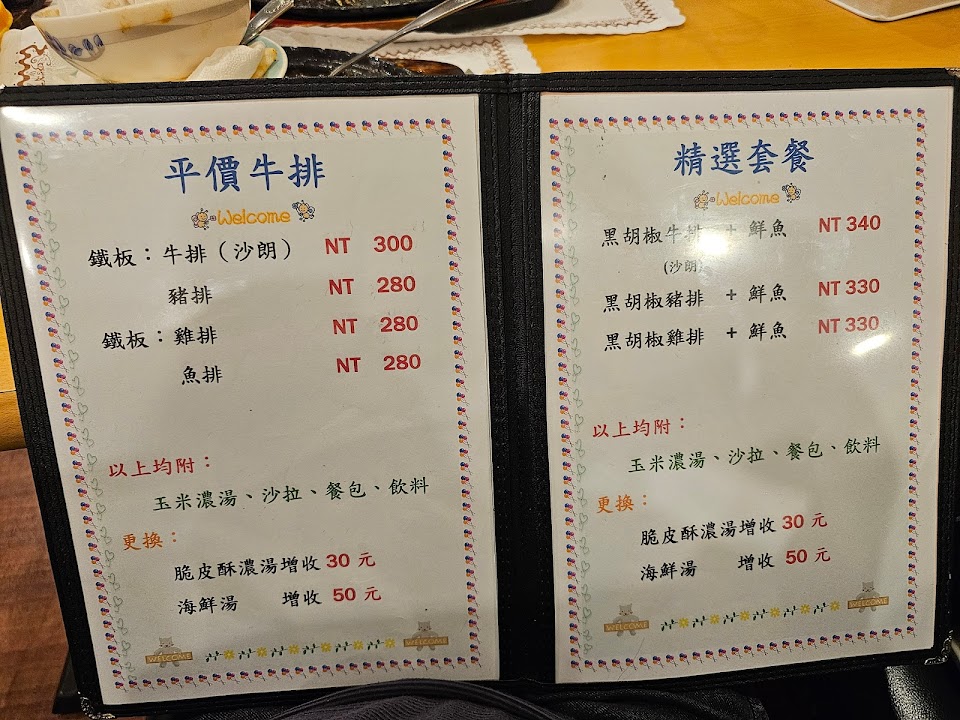 平價牛排
Welcome
鐵板：牛排（沙朗） NT 300
豬排 NT 280
鐵板：雞排 NT 280
魚排 NT 280
以上均附：
玉米濃湯、沙拉、餐包、飲料
更換：
脆皮酥濃湯增收 30 元
海鮮湯 增收 50 元
WELCOME WELCOME
精選套餐
Welcome
黑胡椒牛排 + 鮮魚 NT 340
(沙朗)
黑胡椒豬排 + 鮮魚 NT 330
黑胡椒雞排 + 鮮魚 NT 330
以上均附：
玉米濃湯、沙拉、餐包、飲料
更換：
脆皮酥濃湯增收 30 元
海鮮湯 增收 50 元
WELCOME WELCOME